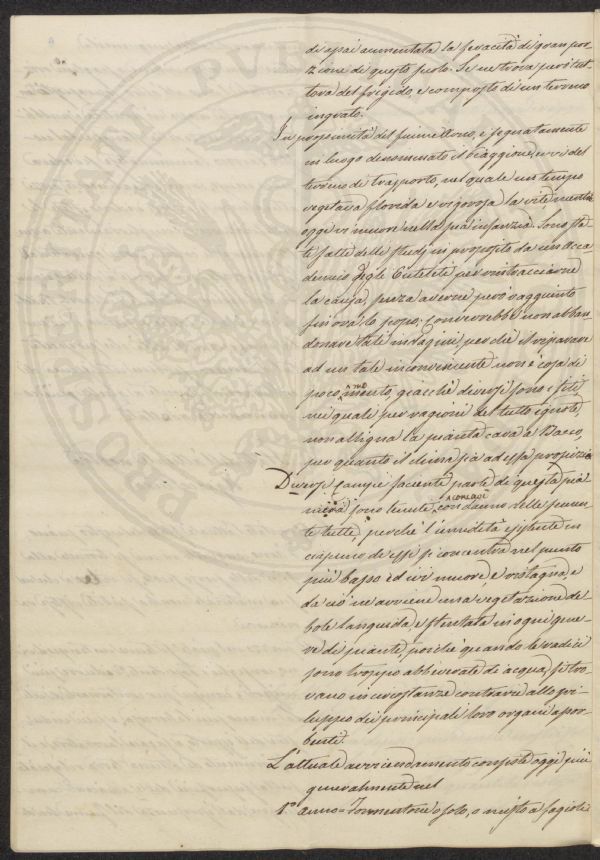 di assai aumentata la feracità di gran por
zione di questo suolo. Se ne trova però tut
tora del frigido, e composto di un terreno
ingrato.
In prossimità del fiume Elvo, e segnatamente
in luogo denominato il viaggione, evvi del
terreno di trasporto, nel quale un tempo
vegetava florida e vigorosa la vite mentre
oggi vi muore nella sua infanzia. Sono sta
ti fatti delli studj in proposito da un Acca
demico degli Euteleti per rintracciarne
la causa, senza averne però raggiunto
fin ora lo scopo; Converrebbe non abban
donare tali indagini, perchè il riparare
ad un tale inconveniente non è cosa di
poco momento, giacchè diversi sono i siti
nei quali per ragioni del tutto ignote
non alligna la pianta cara a Bacco,
per quanto il clima sia ad essa propizio
Diversi campi facienti parte di questa pia
nura sono tenuti a conche con danno delle semen
te tutte, perchè l'umidità esistente in
ciascuno di essi si concentra nel punto
più basso ed ivi muore e ristagna, e
da ciò ne avviene una vegetazione de
bole languida e stentata in ogni gene
re di piante, poichè quando le radici
sono troppo abbeverate di acqua, si tro
vano in circostanze contrarie allo svi
luppo dei principali loro organi assor
benti.
L'attuale avvicendamento consiste oggi più
generalmente nel
1º anno = Formentone solo, o misto a fagioli
PUB
PROS